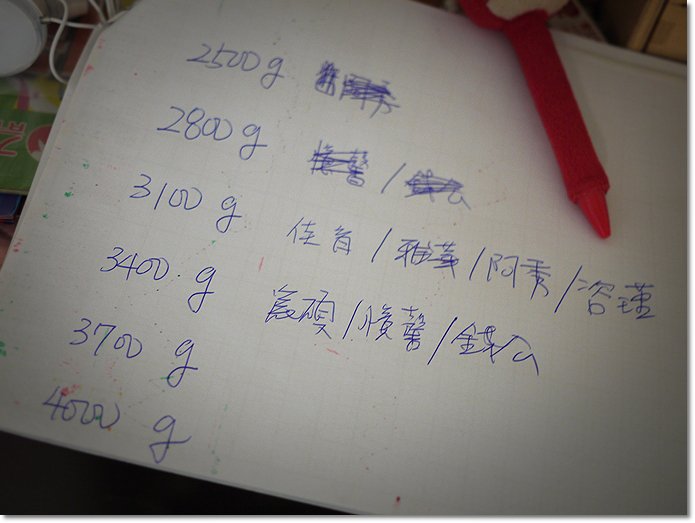 2500 g
2800 g /
3100 g 佳育 / 雅萍 / 阿秀 / 溶瑾
3400 g 廣碩 / 懷馨 / 錢公
3700 g
4000 g